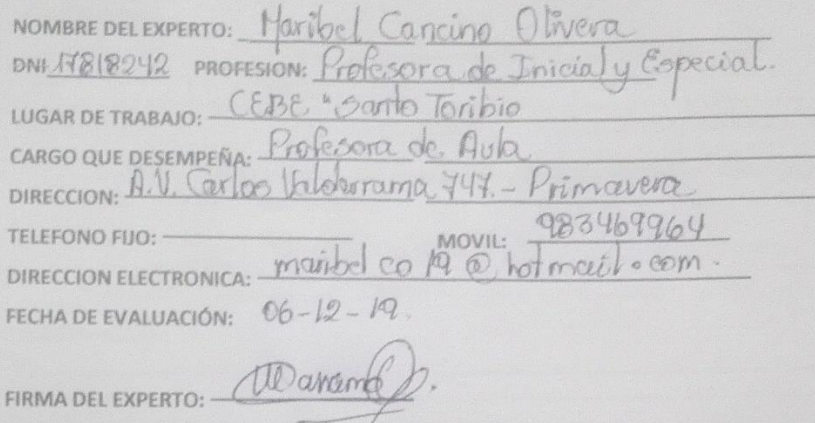 NOMBRE DEL EXPERTO: Maribel Cancino Olivera
DNI 17818242 PROFESION: Profesora de Inicial y Especial.
LUGAR DE TRABAJO: CEBE "Santo Toribio
CARGO QUE DESEMPEÑA: Profesora de Aula
DIRECCION: A.V. Carlos Valderrama 747.- Primavera
TELEFONO FIJO: MOVIL: 983469964
DIRECCION ELECTRONICA: maribel co 19 @ hotmail.com.
FECHA DE EVALUACIÓN: 06-12-19.
FIRMA DEL EXPERTO: